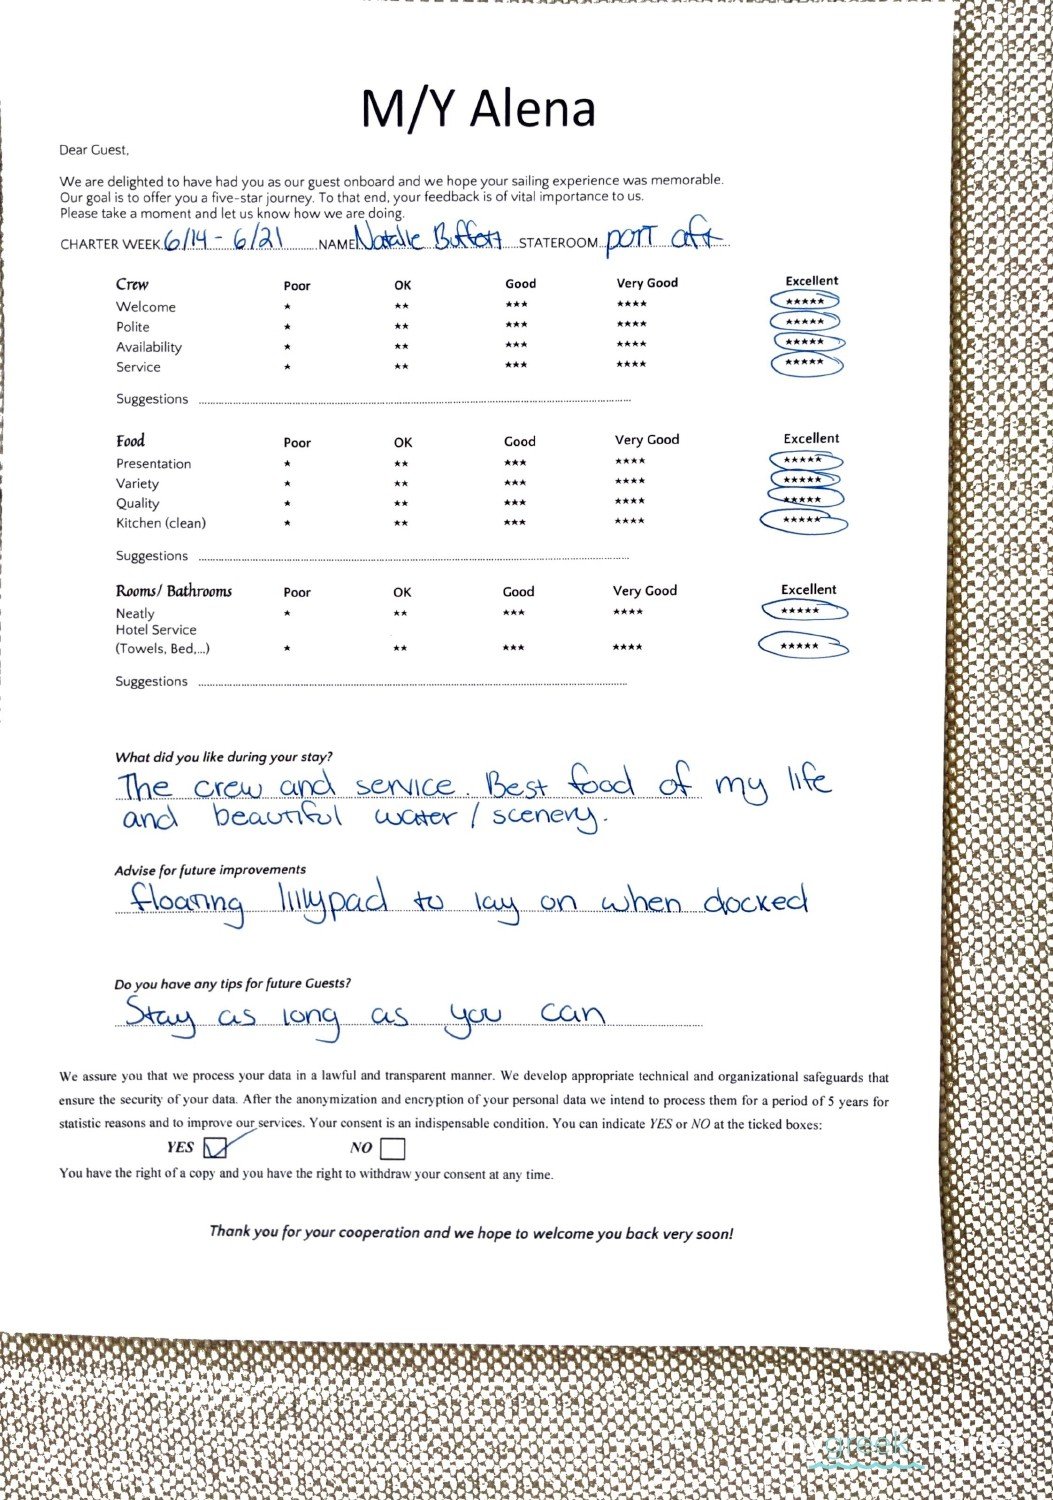 M/Y Alena
Dear Guest,
We are delighted to have had you as our guest onboard and we hope your sailing experience was memorable.
Our goal is to offer you a five-star journey. To that end, your feedback is of vital importance to us.
Please take a moment and let us know how we are doing.
CHARTER WEEK 6/14 - 6/21 NAME Natalie STATEROOM port aft
Crew Poor OK Good Very Good Excellent
Welcome ★ ★★ ★★★ ★★★★ ★★★★★
Polite ★ ★★ ★★★ ★★★★ ★★★★★
Availability ★ ★★ ★★★ ★★★★ ★★★★★
Service ★ ★★ ★★★ ★★★★ ★★★★★
Suggestions
Food Poor OK Good Very Good Excellent
Presentation ★ ★★ ★★★ ★★★★ ★★★★★
Variety ★ ★★ ★★★ ★★★★ ★★★★★
Quality ★ ★★ ★★★ ★★★★ ★★★★★
Kitchen (clean) ★ ★★ ★★★ ★★★★ ★★★★★
Suggestions
Rooms/ Bathrooms Poor OK Good Very Good Excellent
Neatly ★ ★★ ★★★ ★★★★ ★★★★★
Hotel Service
(Towels, Bed,...) ★ ★★ ★★★ ★★★★ ★★★★★
Suggestions
What did you like during your stay?
The crew and service. Best food of my life
and beautiful water / scenery.
Advise for future improvements
floating lillypad to lay on when docked
Do you have any tips for future Guests?
Stay as long as you can
We assure you that we process your data in a lawful and transparent manner. We develop appropriate technical and organizational safeguards that
ensure the security of your data. After the anonymization and encryption of your personal data we intend to process them for a period of 5 years for
statistic reasons and to improve our services. Your consent is an indispensable condition. You can indicate YES or NO at the ticked boxes:
YES NO
You have the right of a copy and you have the right to withdraw your consent at any time.
Thank you for your cooperation and we hope to welcome you back very soon!